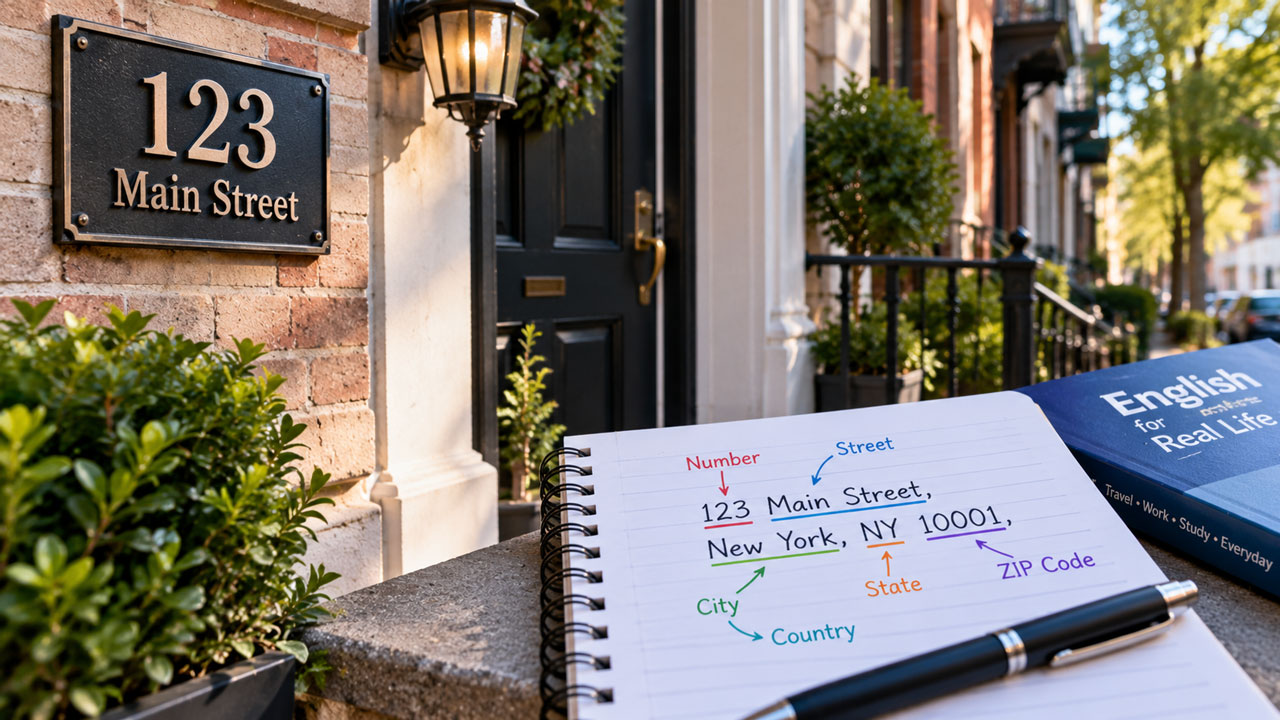 123
Main Street
Number
Street
123 Main Street,
New York, NY 10001,
State
ZIP Code
City
Country
English
for
Real Life
Travel • Work • Study • Everyday